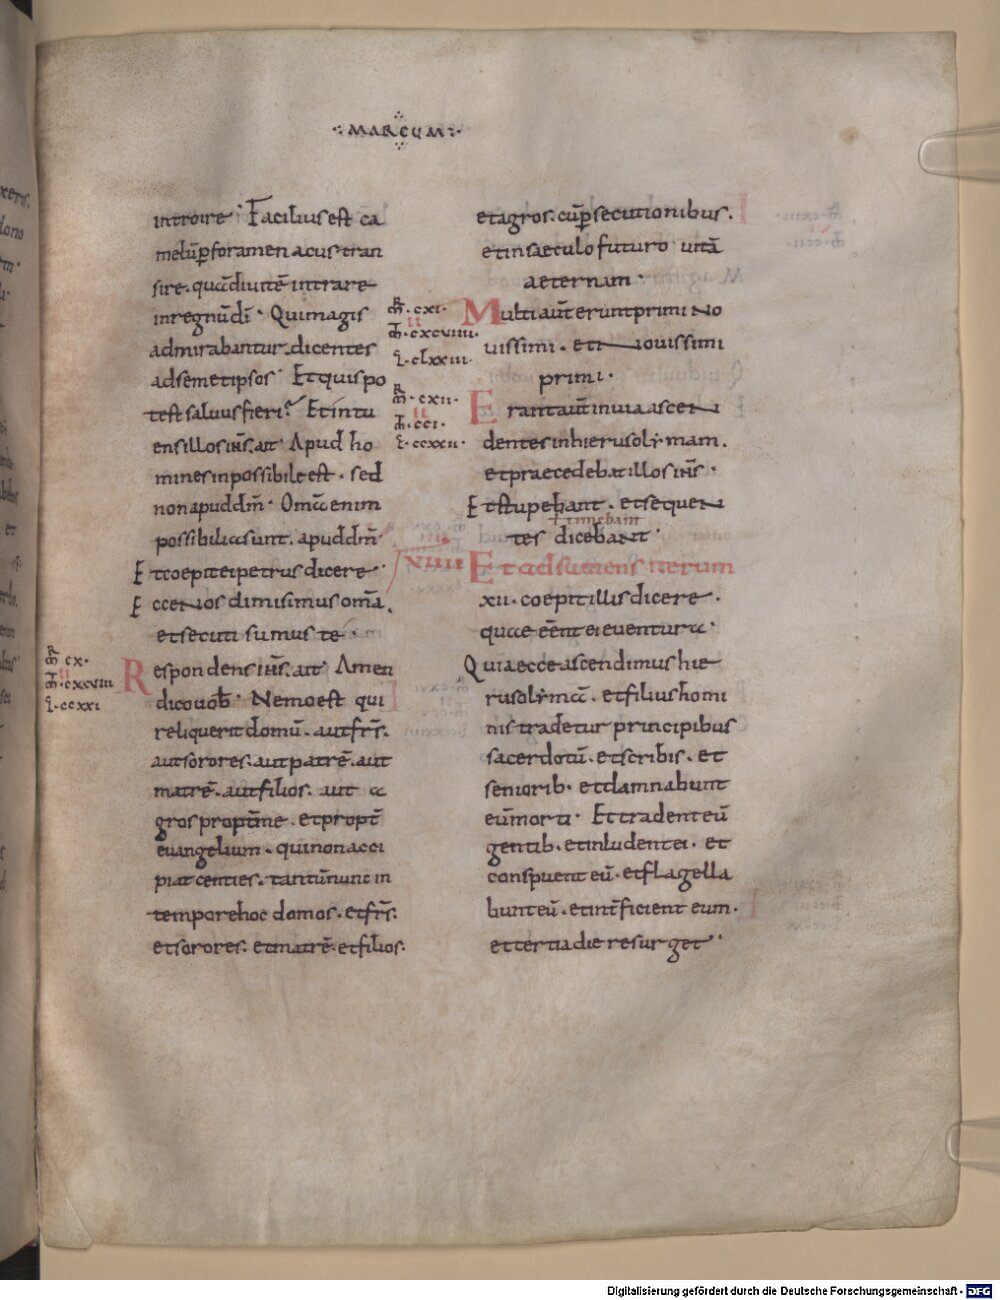 MARCUM
introire · Facilius est ca
melū p foramen acus tran
sire · quā diuitē intrare
in regnū dī · Qui magis
admirabantur dicentes
ad semetipsos · Et quis po
test saluus fieri? Et intu
ens illos ihs · ait · Apud ho
mines inpossibile est · sed
non apud dm̄ · Omnia enim
possibilia sunt · apud dm̄ ·
Et coepit ei petrus dicere ·
Ecce nos dimisimus omā ·
et secuti sumus te ·
m̄ · cx ·
· cxcviii
l · ccxxi
Respondens ihs · ait · Amen
dico uob̄ · Nemo est qui
reliquerit domū · aut frs̄ ·
aut sorores · aut patrē · aut
matrē · aut filios · aut a
gros propt̄ me · et propt̄
euangelium · qui non acci
piat centies · tantū nunc in
tempore hoc domos · et frs̄ ·
et sorores · et matrē · et filios ·
et agros · cū psecutionibus ·
et in saeculo futuro uitā
aeternam ·
m̄ · cxi ·
II
· cxcviiii ·
l · clxxiii ·
Multi aūt erunt primi no
uissimi · et nouissimi
primi ·
m̄ · cxii ·
II
· cci ·
l · ccxxii ·
Erant aūt in uia ascen
dentes in hierusolimam ·
et praecedebat illos ihs ·
Et stupebant · et sequen
ł timebant
tes dicebant ·
XVIIII Et adsumens iterum
xii · coepit illis dicere ·
quae eēnt ei euentura ·
Quia ecce ascendimus hie
rusolimā · et filius homi
nis tradetur principibus
sacerdotū · et scribis · et
seniorib · et damnabunt
eū morti · Et tradent eū
gentib · et inludent ei · et
conspuent eū · et flagella
bunt eū · et int̄ficient eum ·
et tertia die resurget ·
Digitalisierung gefördert durch die Deutsche Forschungsgemeinschaft - DFG